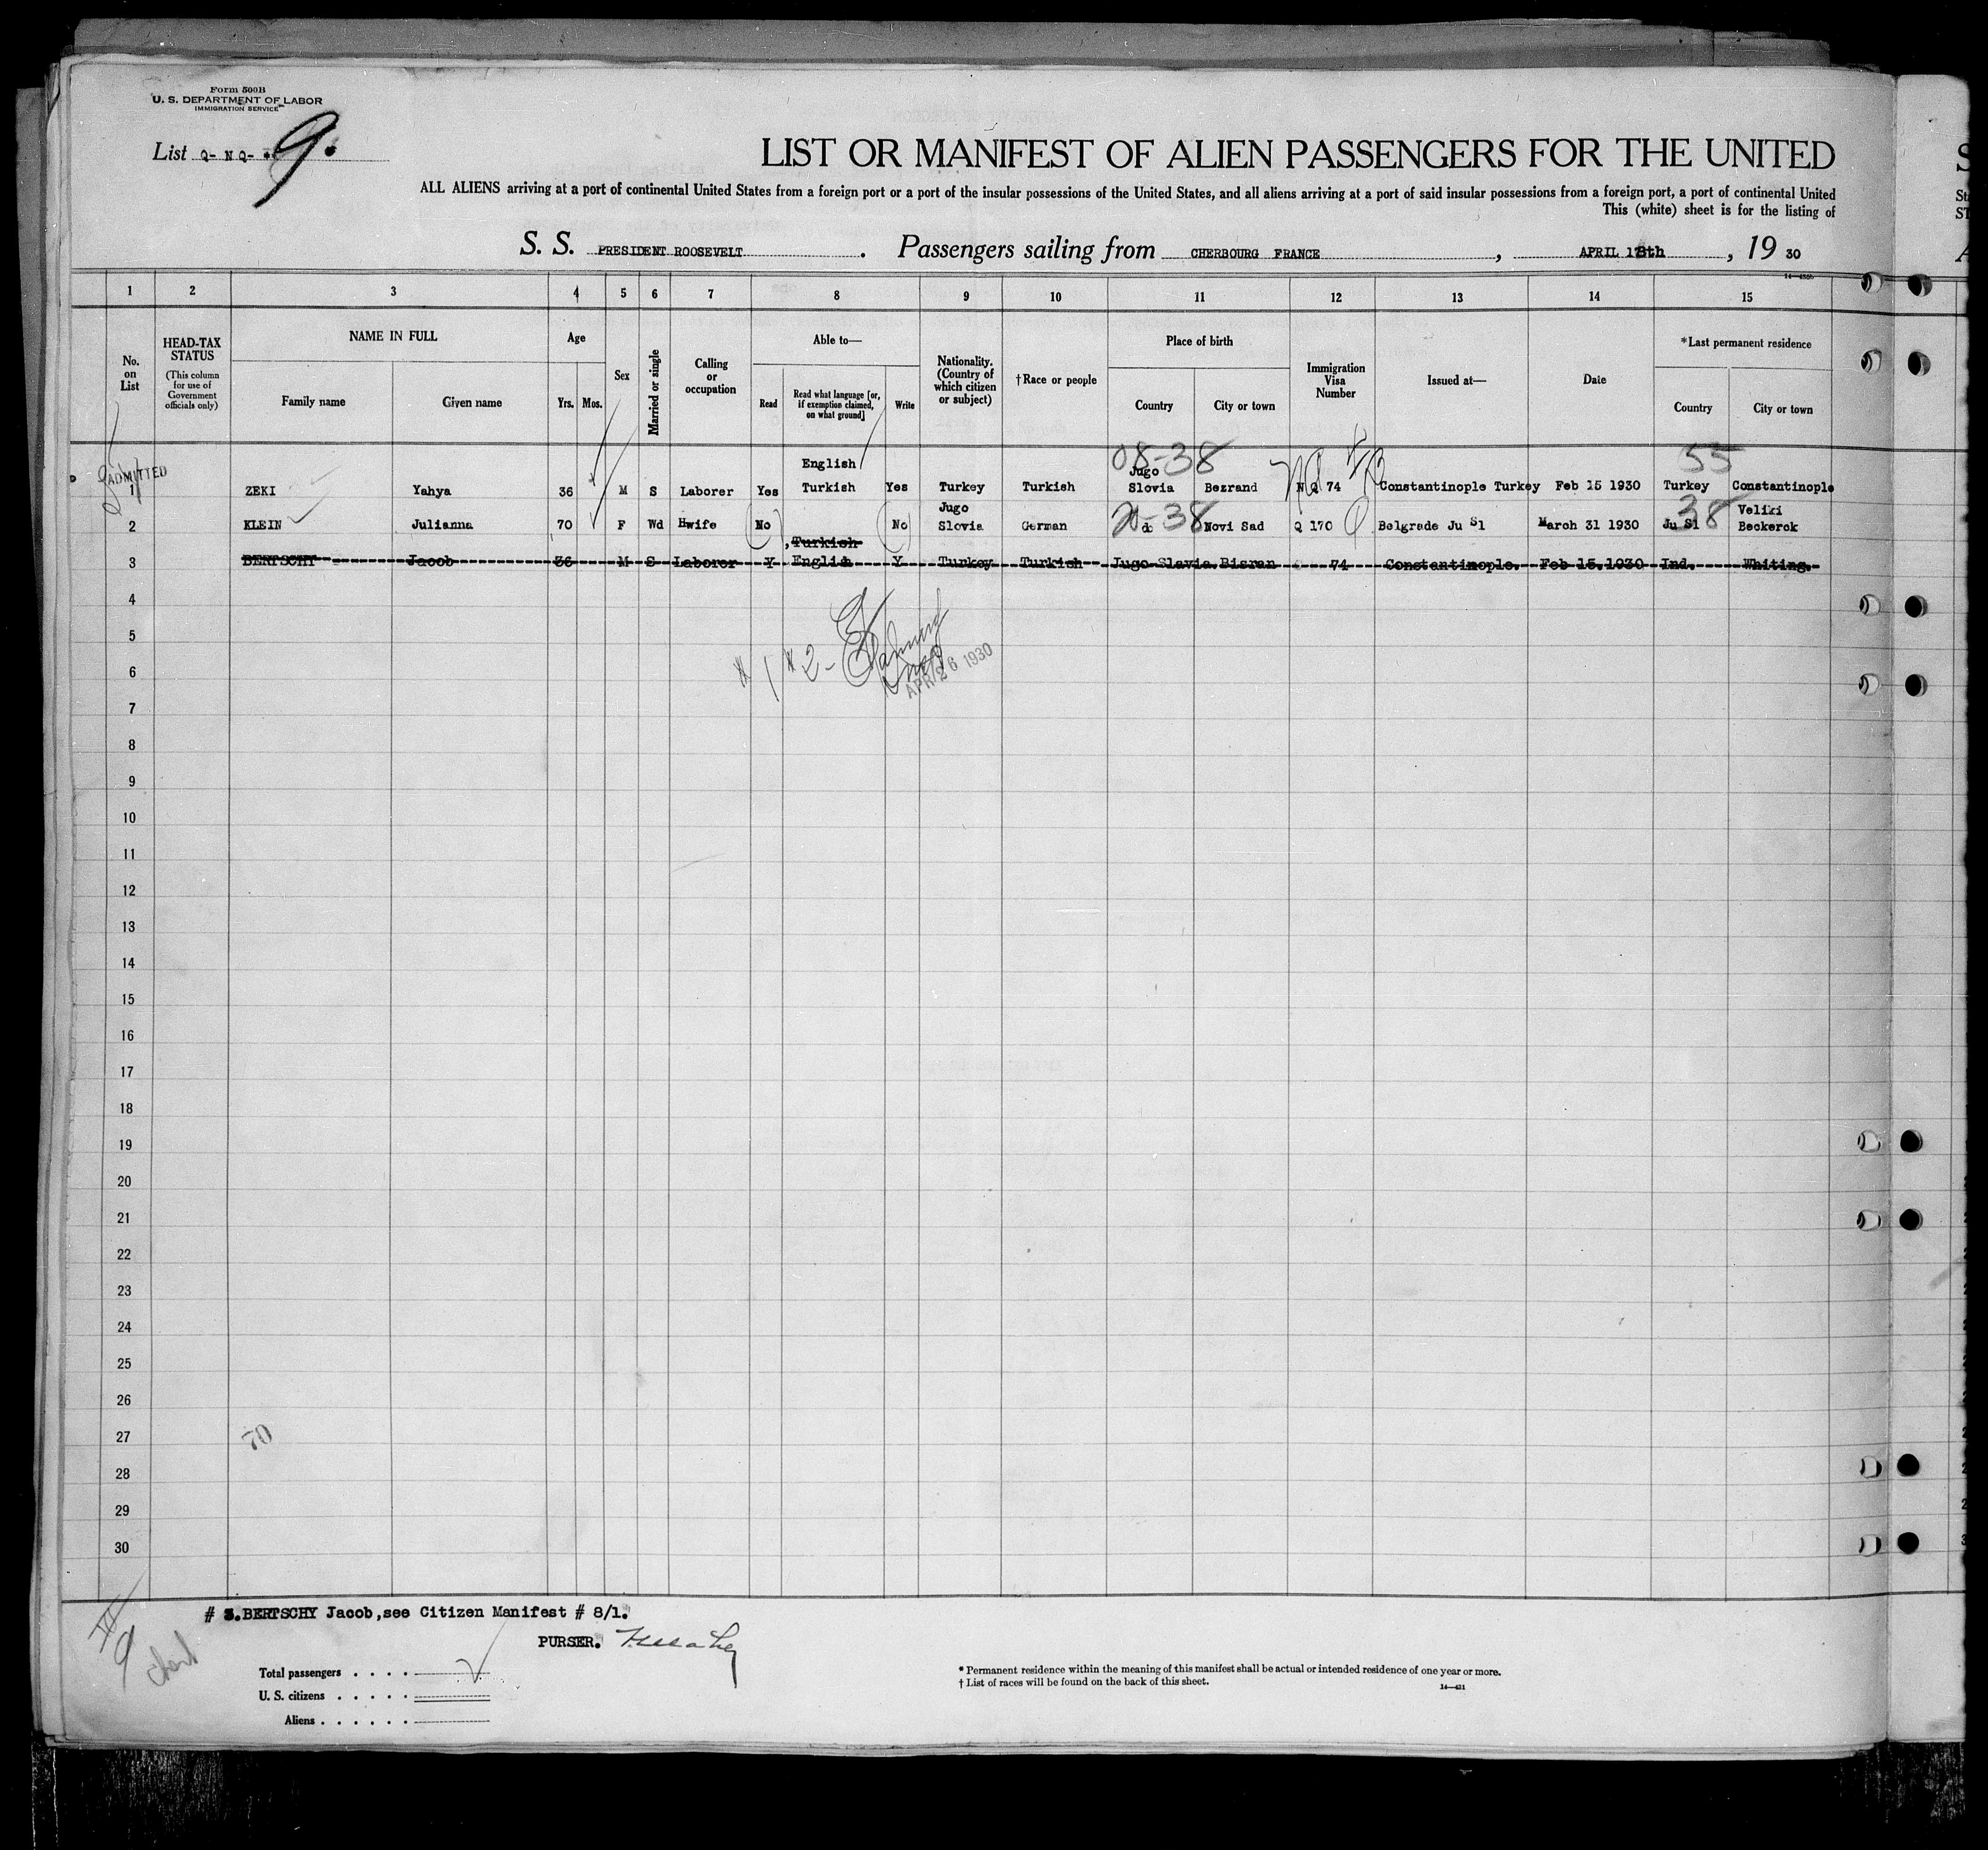 Form 500B
U. S. DEPARTMENT OF LABOR
IMMIGRATION SERVICE
List Q- NQ- 9.
LIST OR MANIFEST OF ALIEN PASSENGERS FOR THE UNITED
ALL ALIENS arriving at a port of continental United States from a foreign port or a port of the insular possessions of the United States, and all aliens arriving at a port of said insular possessions from a foreign port, a port of continental United
This (white) sheet is for the listing of
S. S. PRESIDENT ROOSEVELT. Passengers sailing from CHERBOURG FRANCE, APRIL 18th, 19 30
1 2 3 4 5 6 7 8 9 10 11 12 13 14 15
No. on List
HEAD-TAX STATUS
(This column for use of Government officials only)
NAME IN FULL
Family name Given name
Age
Yrs. Mos.
Sex
Married or single
Calling or occupation
Able to—
Read
Read what language [or, if exemption claimed, on what ground]
Write
Nationality. (Country of which citizen or subject)
†Race or people
Place of birth
Country City or town
Immigration Visa Number
Issued at—
Date
*Last permanent residence
Country City or town
08-38 55
ADMITTED English Jugo
1 ZEKI Yahya 36 M S Laborer Yes Turkish Yes Turkey Turkish Slovia Bezrand NQ 74 Constantinople Turkey Feb 15 1930 Turkey Constantinople
Jugo 20-38 38 Veliki
2 KLEIN Julianna 70 F Wd Hwife No No Slovia German do Novi Sad Q 170 Belgrade Ju Sl March 31 1930 Ju Sl Beckerck
,Turkish
3 BERTSCHY Jacob 36 M S Laborer Y English Y Turkey Turkish Jugo Slavia Bisran 74 Constantinople. Feb 15.1930 Ind. Whiting.
4
5
# 1 # 2 -
6
APR 26 1930
7
8
9
10
11
12
13
14
15
16
17
18
19
20
21
22
23
24
25
26
27
70
28
29
30
# 3.BERTSCHY Jacob,see Citizen Manifest # 8/1.
PURSER.
9
Total passengers . . . .
U. S. citizens . . . . .
Aliens . . . . . .
* Permanent residence within the meaning of this manifest shall be actual or intended residence of one year or more.
† List of races will be found on the back of this sheet.
14—431